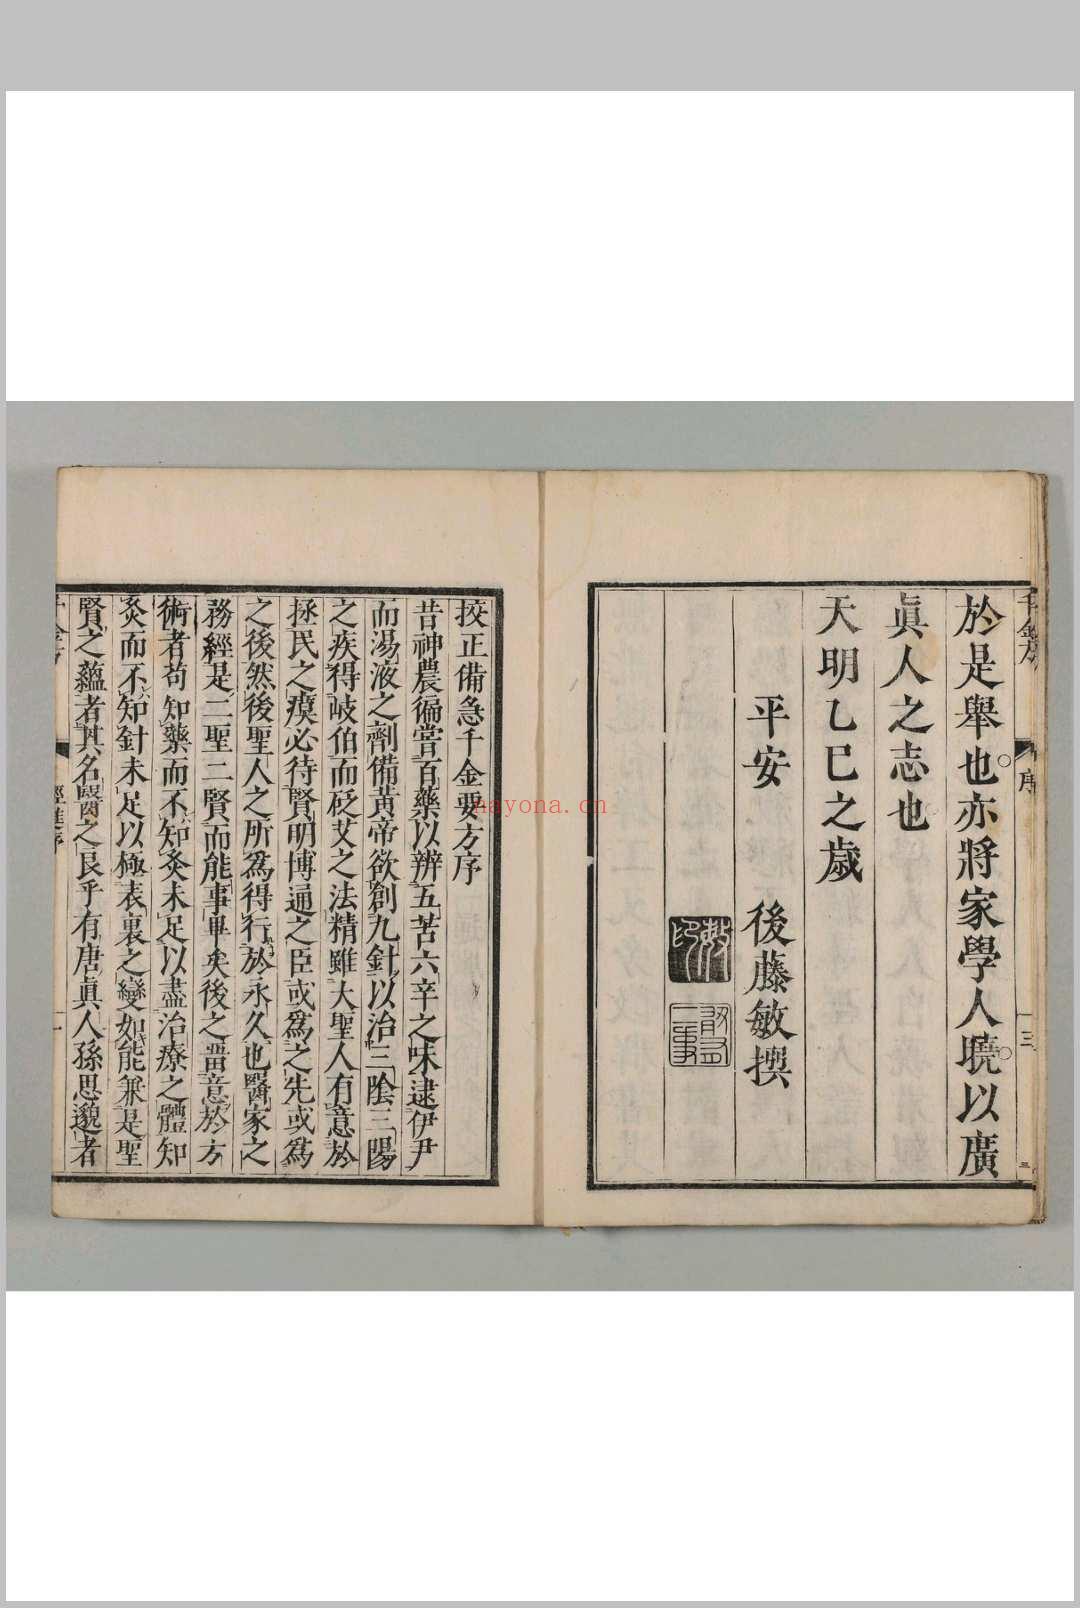 於是舉也亦將家學人曉以廣
眞人之志也
天明乙巳之歲
平安　後藤敏撰
序
三
挍正備急千金要方序
昔神農徧嘗百藥以辨五苦六辛之味逮伊尹
而湯液之劑備黃帝欲創九針以治三陰三陽
之疾得岐伯而砭艾之法精雖大聖人有意於
拯民之瘼必待賢明博通之臣或爲之先或爲
之後然後聖人之所爲得行於永久也醫家之
務經是二聖二賢而能事畢矣後之畱意於方
術者苟知藥而不知灸未足以盡治療之體知
灸而不知針未足以極表裏之變如能兼是聖
賢之蘊者其名醫之良乎有唐眞人孫思邈者
nayona.cn